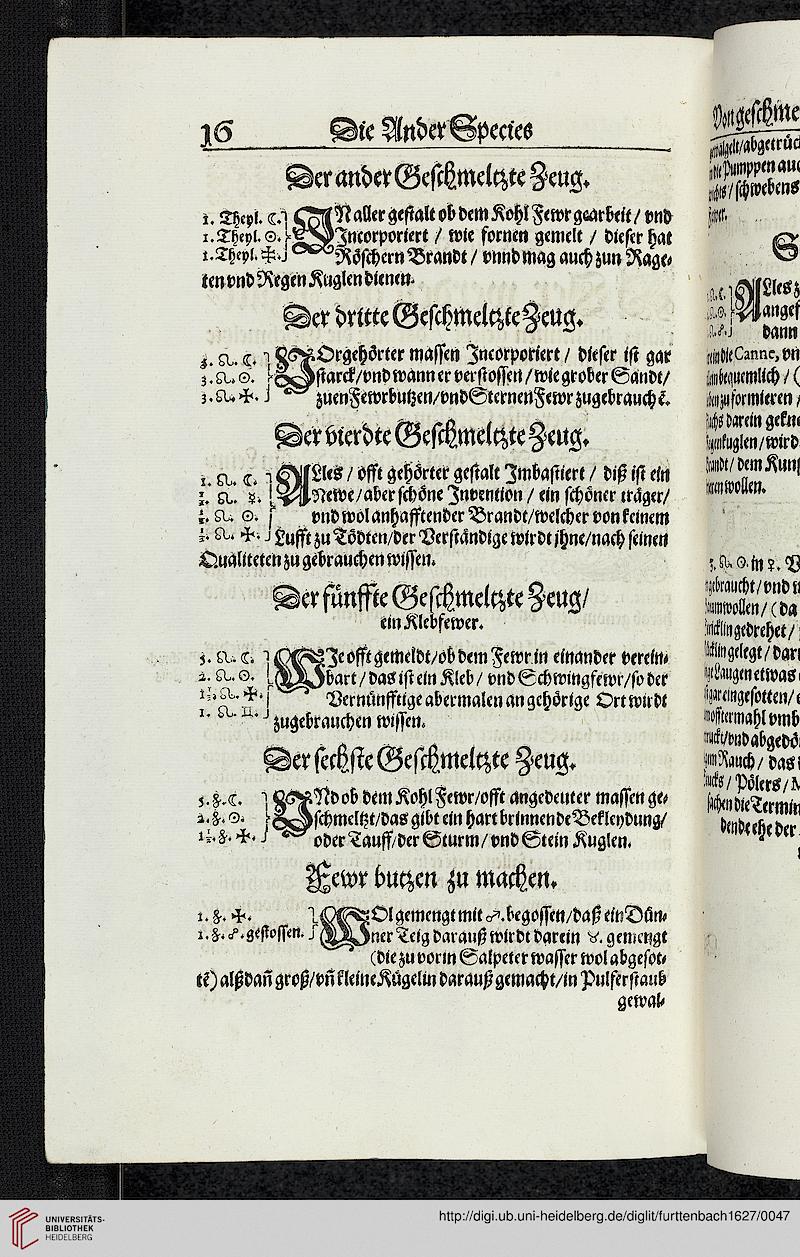 16 Die Ander Species
Der ander Geschmeltzte Zeug.
1. Theyl. ☾.
1. Theyl. ☉.
1. Theyl.
IN aller gestalt ob dem Kohl Fewr gearbeit / vnd
Incorporiert / wie fornen gemelt / dieser hat
Röschern Brandt / vnnd mag auch zun Rage-
ten vnd Regen Kuglen dienen.
Der dritte Geschmeltzte Zeug.
3. ♌. ☾.
3. ♌. ☉.
3. ♌. ✠.
VOrgehörter massen Incorporiert / dieser ist gar
starck / vnd wann er verstossen / wie grober Sandt /
zuen Fewrbutzen / vnd Sternen Fewr zugebrauchẽ.
Der vierdte Geschmeltzte Zeug.
1. ♌. ☾.
♌. ☿.
♌. ☉.
♌. ✠.
ALles / offt gehörter gestalt Imbastiert / diß ist ein
Newe / aber schöne Invention / ein schöner träger /
vnd wol anhafftender Brandt / welcher von keinem
Lufft zu Tödten / der Verständige wirdt jhne / nach seinen
Qualiteten zu gebrauchen wissen.
Der fünffte Geschmeltzte Zeug /
ein Klebfewer.
3. ♌. ☾.
2. ♌. ☉.
1½. ♌. ✠.
1. ♌. ♊.
WIe offt gemeldt / ob dem Fewr in einander verein-
bart / das ist ein Kleb / vnd Schwingfewr / so der
Vernünfftige abermalen an gehörige Ort wirdt
zugebrauchen wissen.
Der sechste Geschmeltzte Zeug.
☾.
☉.
✠.
VNd ob dem Kohl Fewr / offt angedeuter massen ge-
schmeltzt / das gibt ein hart brinnende Bekleydung /
oder Tauff / der Sturm / vnd Stein Kuglen.
Fewr butzen zu machen.
✠.
gestossen.
WOl gemengt mit ♂. begossen / daß ein Dün-
ner Teig darauß wirdt darein ♉. gemengt
(die zuvor in Salpeter wasser wol abgesot-
tẽ) alßdañ groß / vñ kleine Kügelin darauß gemacht / in Pulferstaub
gewal-
Von geschme
abgetrüc
Pumppen auc
schwebens
ALles z
angef
dann
die Canne, vn
bequemlich / (
zu formieren /
darein gekne
kuglen / wird
dem Kuns
wollen.
☉. in ♀.
braucht / vnd
wollen / ( da
gedrehet /
gelegt / dar
Laugen etwas
eingesotten /
offtermahl vmb
vnd abgedö
Rauch / das
Pölers /
die Termin
dende ehe der
UNIVERSITÄTS-
BIBLIOTHEK
HEIDELBERG
http://digi.ub.uni-heidelberg.de/diglit/furttenbach1627/0047